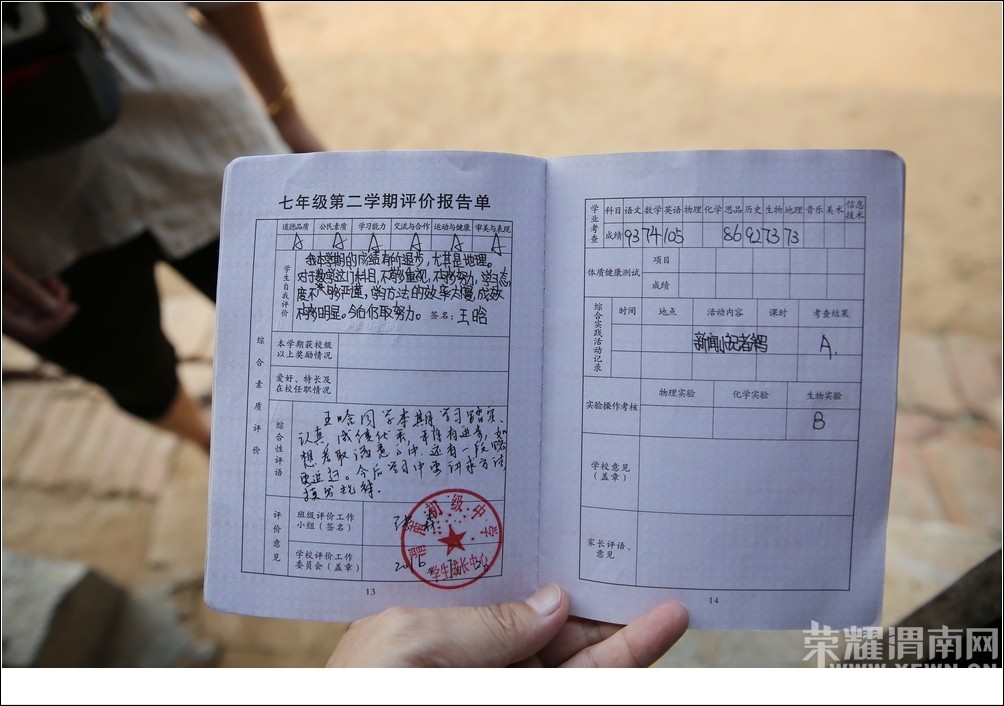 七年级第二学期评价报告单
道德品质 公民素质 学习能力 交流与合作 运动与健康 审美与表现
A A A A A A
学生自我评价
我本学期的成绩有的退步，尤其是地理。
对于数学这门科目，不够重视，不够努力，学习态
度不够严谨，学习方法的效率太慢，成效
不够明显。今后仍取努力。 签名：王晗
综合素质评价
本学期获校级
以上奖励情况
爱好、特长及
在校任职情况
综合性评语
王晗同学本期学习踏实、
认真，成绩优秀，并持有进步，如
想考取满意高中，还有一段路
要追赶。今后学习中要讲求方法，
评价意见
班级评价工作
小组（签名）
学校评价工作
委员会（盖章）
初级中学
学生成长中心
2016
13
学业考查
科目 语文 数学 英语 物理 化学 思品 历史 生物 地理 音乐 美术 信息技术
成绩 93 74 105 86 92 73 73
体质健康测试
项目
成绩
综合实践活动记录
时间 地点 活动内容 课时 考查结果
新闻小记者 A.
实验操作考核
物理实验 化学实验 生物实验
B
学校意见
（盖章）
家长评语、
意见
14
荣耀渭南网
WWW.XEWN.CN